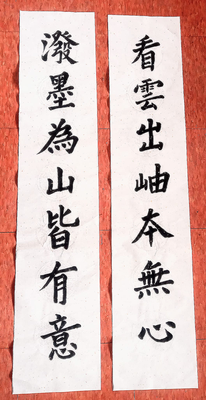 看雲出岫本無心
潑墨為山皆有意